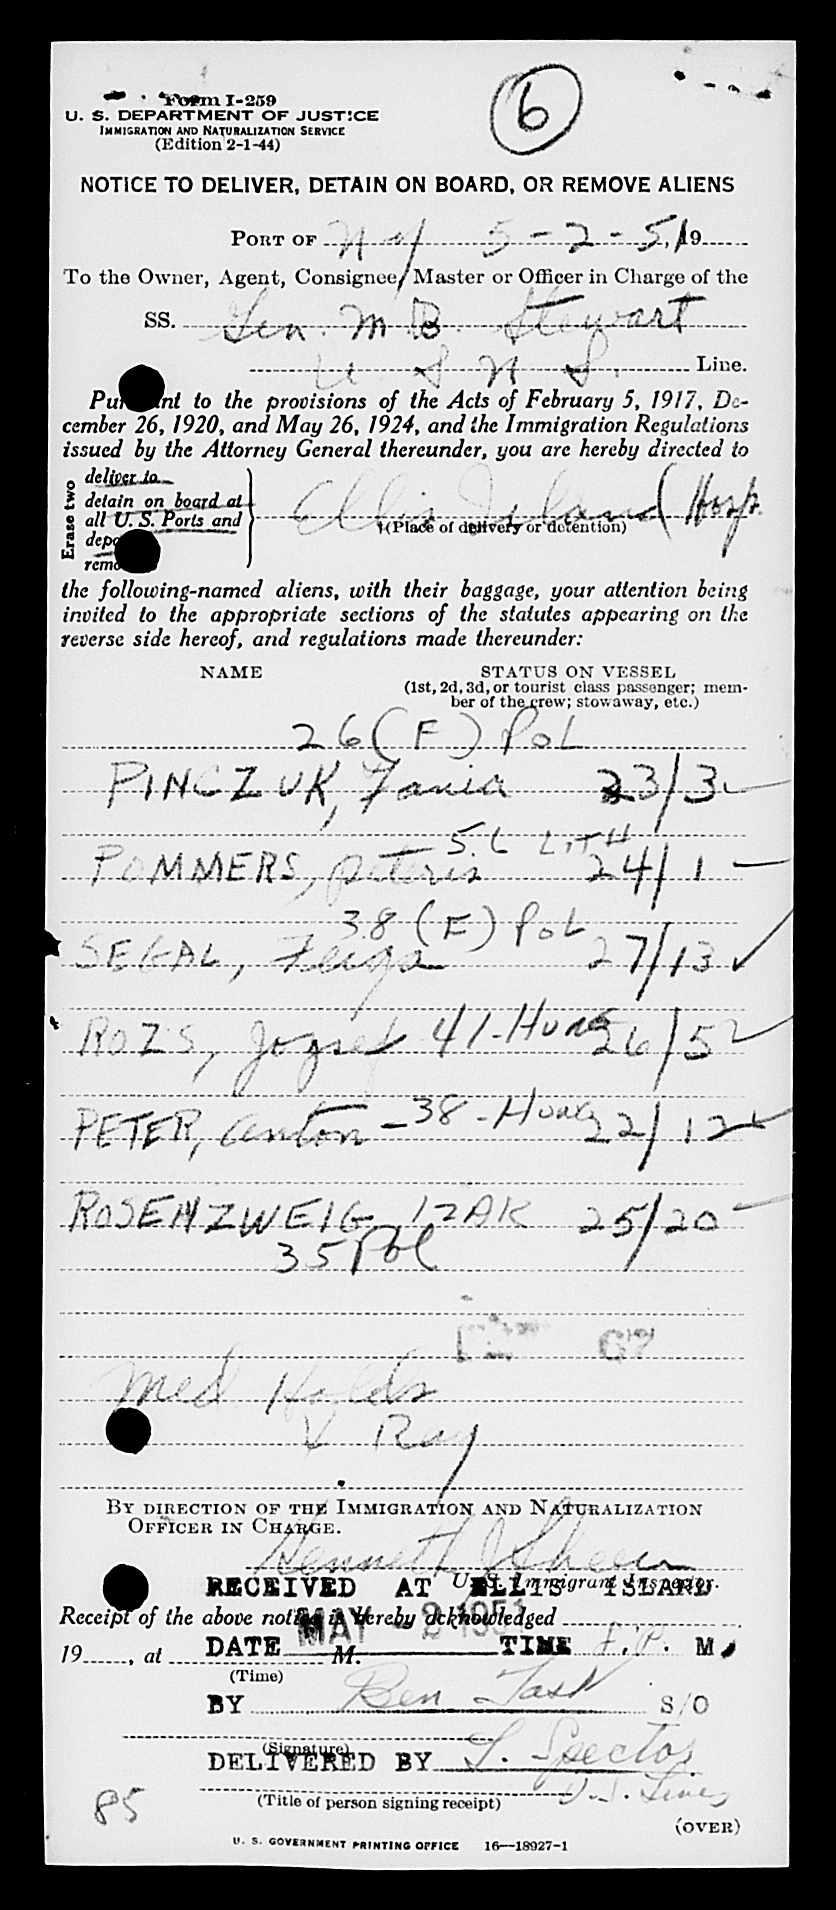 6
Form I-259
U. S. DEPARTMENT OF JUSTICE
IMMIGRATION AND NATURALIZATION SERVICE
(Edition 2-1-44)
NOTICE TO DELIVER, DETAIN ON BOARD, OR REMOVE ALIENS
PORT OF N Y 5-2-51, 19
To the Owner, Agent, Consignee, Master or Officer in Charge of the
SS. Gen. M B. Stewart
U S N S. Line.
Pursuant to the provisions of the Acts of February 5, 1917, De-
cember 26, 1920, and May 26, 1924, and the Immigration Regulations
issued by the Attorney General thereunder, you are hereby directed to
Erase two
deliver to
detain on board at
all U. S. Ports and
Ellis Island (Hosp.
(Place of delivery or detention)
the following-named aliens, with their baggage, your attention being
invited to the appropriate sections of the statutes appearing on the
reverse side hereof, and regulations made thereunder:
NAME STATUS ON VESSEL
(1st, 2d, 3d, or tourist class passenger; mem-
ber of the crew; stowaway, etc.)
26 (F) Pol
PINCZUK, Fania 23/3
56 LITH
POMMERS, Peteris 24/1
38 (F) Pol
SEGAL, Feiga 27/13
ROZS, Jozsef 41-Hung 26/5
PETER, Anton -38-Hung 22/12
ROSENZWEIG, IZAK 25/20
35 Pol
Med Holds
X Ray
BY DIRECTION OF THE IMMIGRATION AND NATURALIZATION
OFFICER IN CHARGE.
Kenneth J Sheer
U. S. Immigrant Inspector.
RECEIVED AT ELLIS ISLAND
Receipt of the above notice is hereby acknowledged
MAY - 2 1951
19, at M.
DATE TIME P. M.
(Time)
BY Ben Task S/O
(Signature)
DELIVERED BY L. Spector
U.S. Lines
(Title of person signing receipt)
85
(OVER)
U. S. GOVERNMENT PRINTING OFFICE 16—18927-1